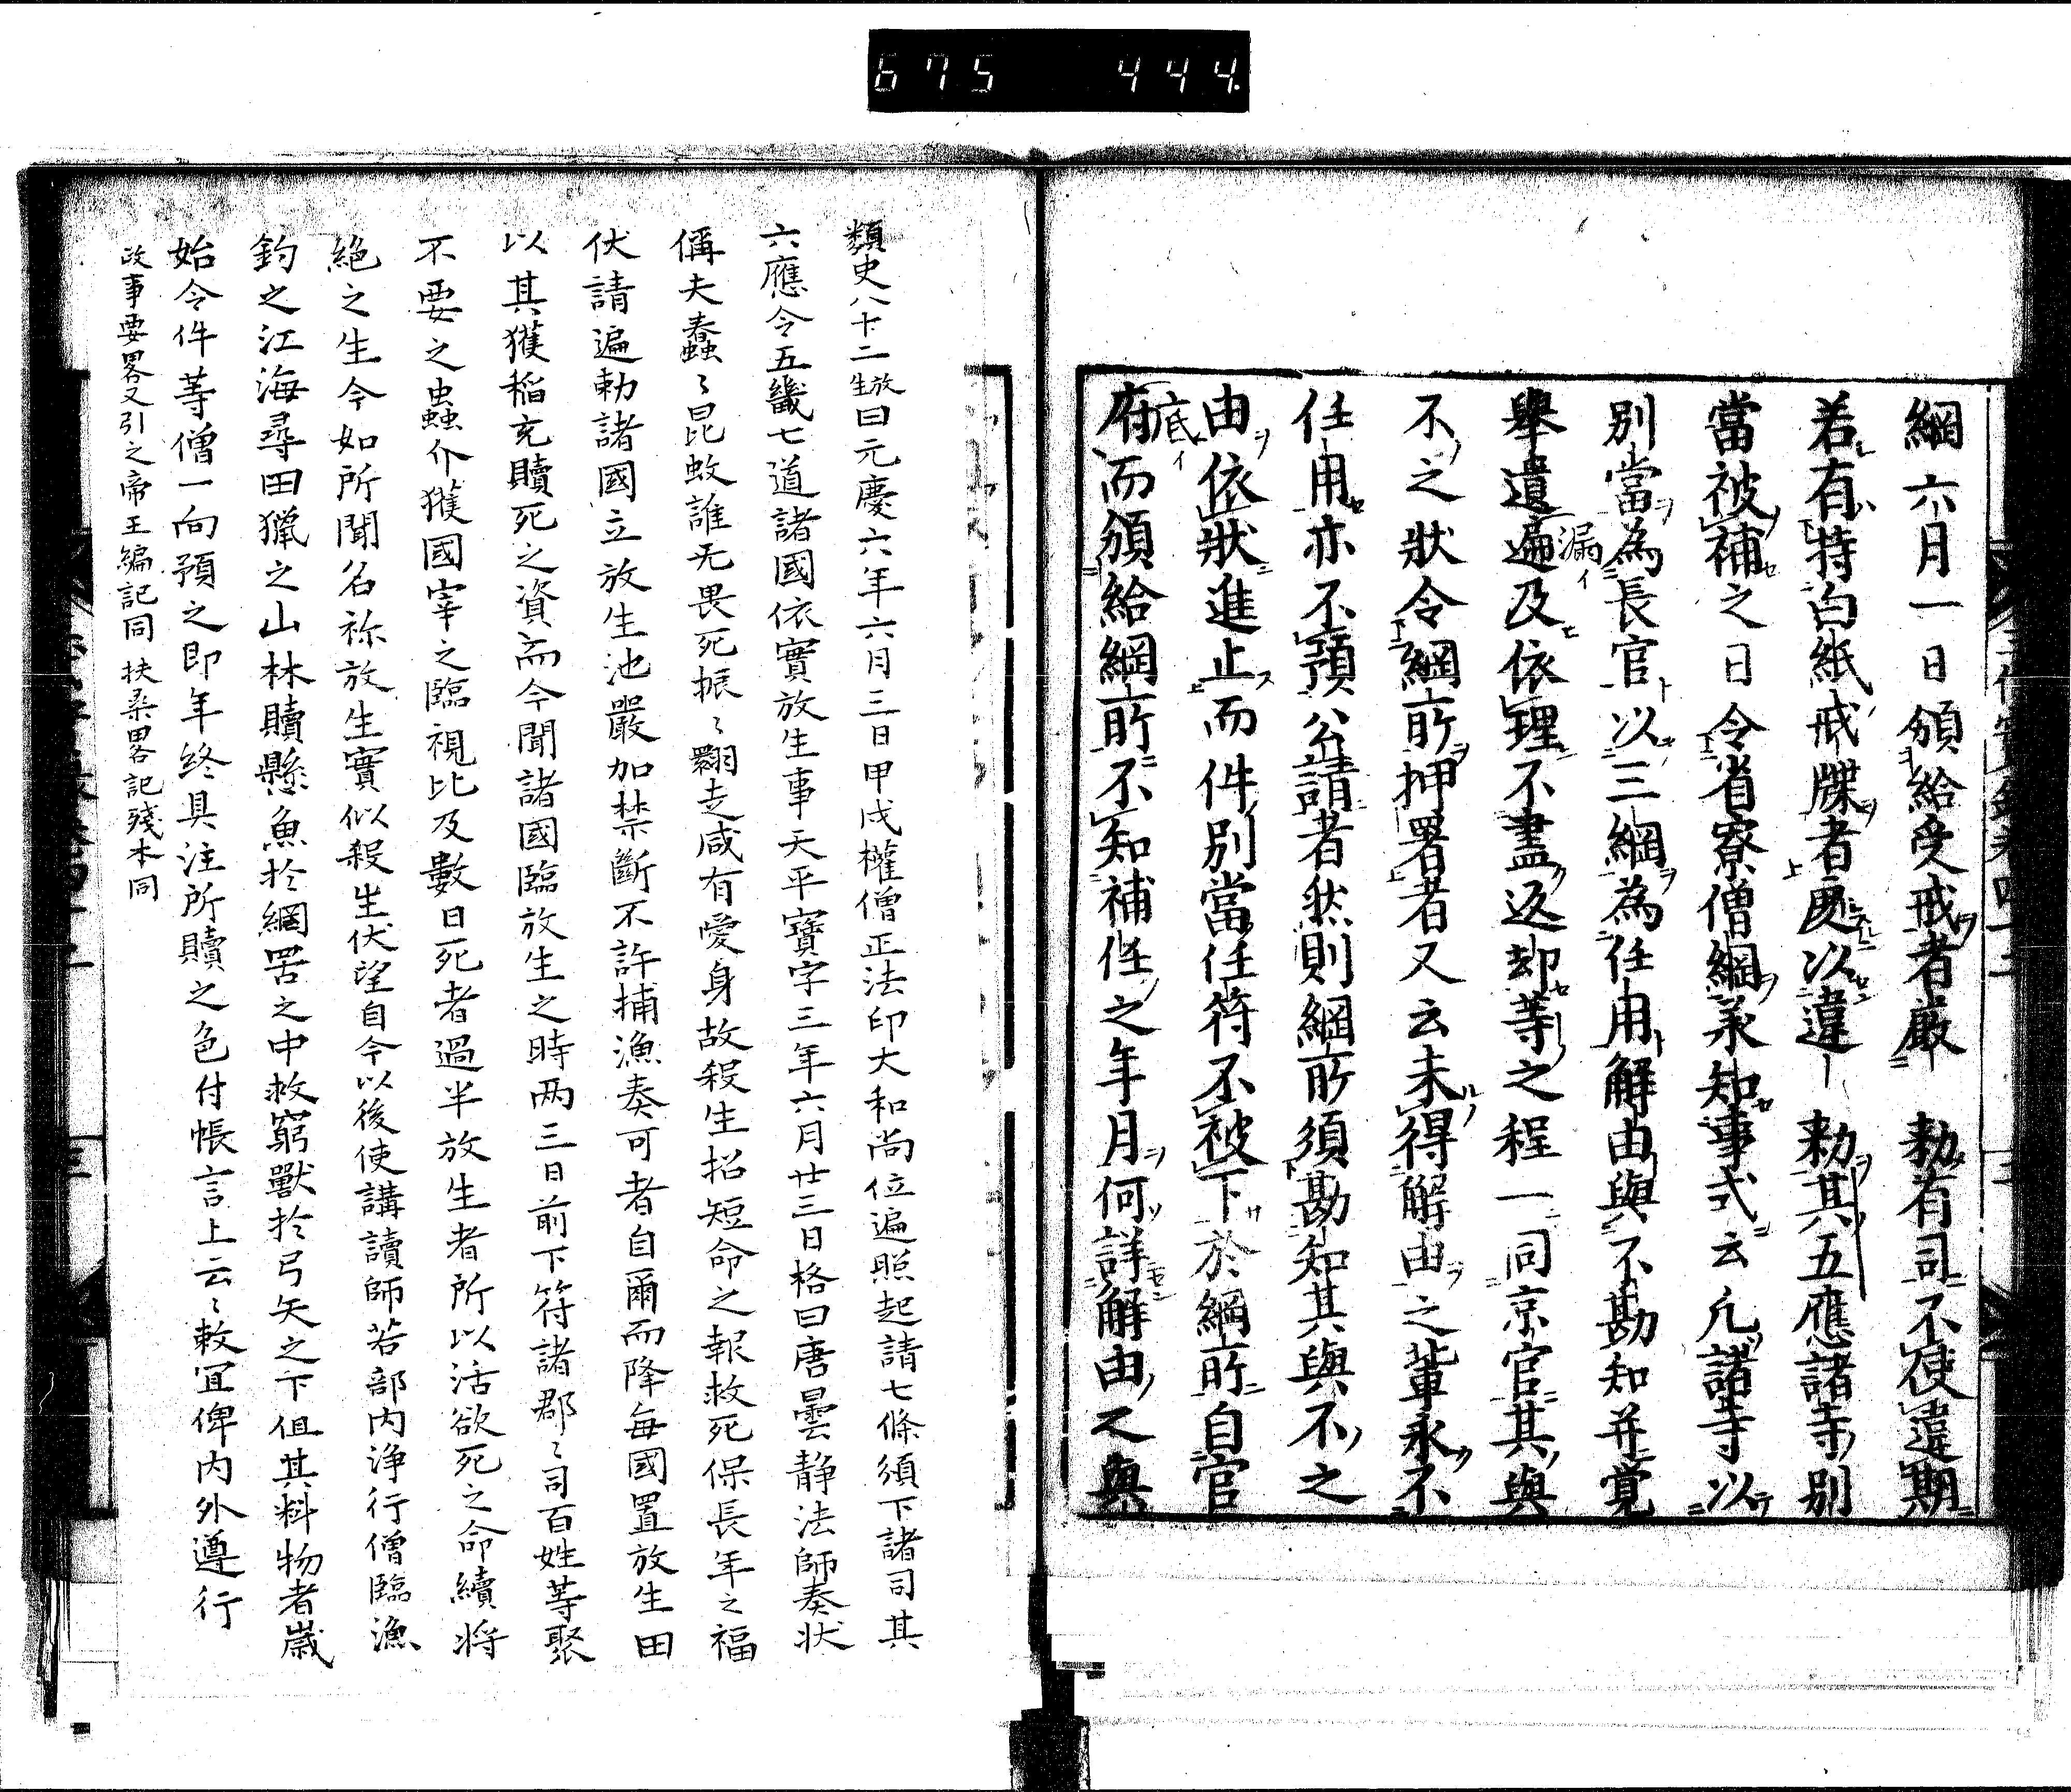 675 444
綱六月一日頒給受戒者厳 勅有司不使違期
若有特白紙戒牒者処以違 勅其五應諸寺別
當被補之日令省寮僧綱承知事式云凢諸寺以
別當為長官以三綱為任用解由與不勘知并覚
舉遺漏イ遍及依理不盡返却等之程一同京官其與
不之狀令綱所押署者又云未得解由之輩永不
任用亦不預公請者然則綱所須勘知其與不之
由依狀進止而件別當任符不被下於綱所自官
府底イ而頒給綱所不知補任之年月何詳解由之與
類史八十二放生曰元慶六年六月三日甲戌權僧正法印大和尚位遍照起請七條須下諸司其
六應令五畿七道諸國依實放生事天平寳字三年六月廿三日格曰唐曇静法師奏状
偁夫蠢蠢〻昆蚑誰无畏死振〻翾走咸有愛身故殺生招短命之報救死保長年之福
伏請遍勅諸國立放生池嚴加禁斷不許捕漁奏可者自爾而降毎國置放生田
以其獲稲充贖死之資而今聞諸國臨放生之時两三日前下符諸郡〻司百姓等聚
不要之蟲介獲國宰之臨視比及數日死者過半放生者所以活欲死之命續将
絶之生今如所聞名祢放生實似殺生伏望自今以後使講讀師若部内浄行僧臨漁
釣之江海尋田獵之山林贖懸魚於網罟之中救窮獸於弓矢之下但其料物者嵗
始令件等僧一向預之即年终具注所贖之色付帳言上云〻敕冝俾内外遵行
政事要畧又引之帝王編記同 扶桒畧記殘本同